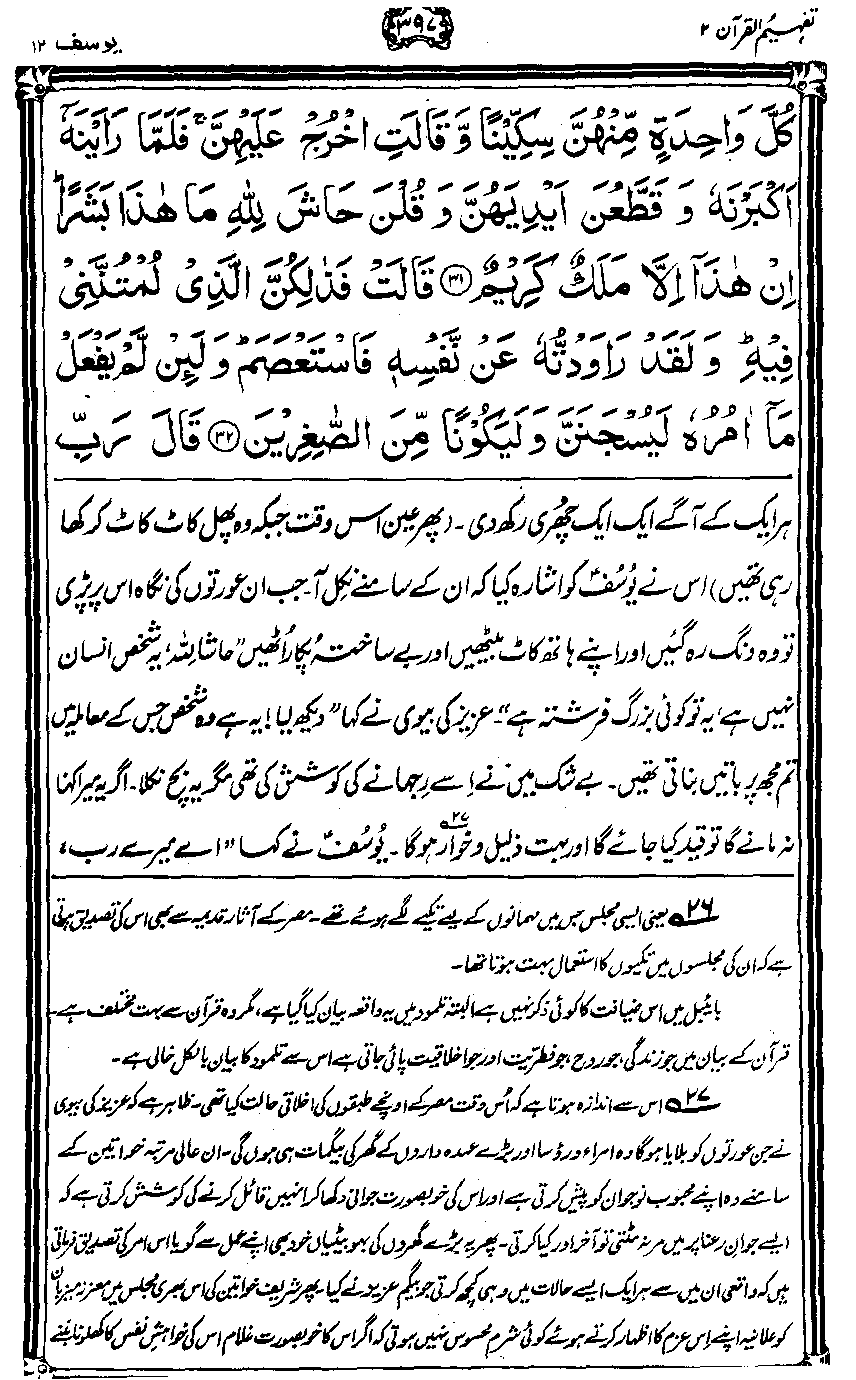 تفہیم القرآن ۲
۳۹۷
یوسف ۱۲
كُلَّ وَاحِدَةٍ مِّنْهُنَّ سِكِّيْنًا وَّ قَالَتِ اخْرُجْ عَلَيْهِنَّ ۚ فَلَمَّا رَاَيْنَهٗۤ
اَكْبَرْنَهٗ وَ قَطَّعْنَ اَيْدِيَهُنَّ وَ قُلْنَ حَاشَ لِلّٰهِ مَا هٰذَا بَشَرًا ؕ
اِنْ هٰذَاۤ اِلَّا مَلَكٌ كَرِيْمٌ ﴿۳۱﴾ قَالَتْ فَذٰلِكُنَّ الَّذِيْ لُمْتُنَّنِيْ
فِيْهِ ؕ وَ لَقَدْ رَاوَدْتُّهٗ عَنْ نَّفْسِهٖ فَاسْتَعْصَمَ ؕ وَ لَىِٕنْ لَّمْ يَفْعَلْ
مَاۤ اٰمُرُهٗ لَيُسْجَنَنَّ وَ لَيَكُوْنًا مِّنَ الصّٰغِرِيْنَ ﴿۳۲﴾ قَالَ رَبِّ
ہر ایک کے آگے ایک ایک چھُری رکھ دی۔ (پھر عین اس وقت جبکہ وہ پھل کاٹ کاٹ کر کھا
رہی تھیں) اس نے یُوسُفؑ کو اشارہ کیا کہ ان کے سامنے نکل آ۔ جب ان عورتوں کی نگاہ اس پر پڑی
تو وہ دنگ رہ گئیں اور اپنے ہاتھ کاٹ بیٹھیں اور بے ساختہ پکار اُٹھیں ”حاشا للہ، یہ شخص انسان
نہیں ہے، یہ تو کوئی بزرگ فرشتہ ہے“۔ عزیز کی بیوی نے کہا ”دیکھ لیا! یہ ہے وہ شخص جس کے معاملہ میں
تم مجھ پر باتیں بناتی تھیں۔ بے شک میں نے اِسے رِجھانے کی کوشش کی تھی مگر یہ بچ نکلا۔ اگر یہ میرا کہنا
نہ مانے گا تو قید کیا جائے گا اور بہت ذلیل و خوار ہوگا۔۲۷ یُوسُفؑ نے کہا ”اے میرے رب،
۲۶ یعنی ایسی مجلس جس میں مہمانوں کے لیے تکیے لگے ہوئے تھے۔ مصر کے آثار قدیمہ سے بھی اس کی تصدیق ہوتی
ہے کہ ان کی مجلسوں میں تکیوں کا استعمال بہت ہوتا تھا۔
بائیبل میں اس ضیافت کا کوئی ذکر نہیں ہے البتہ تلمود میں یہ واقعہ بیان کیا گیا ہے، مگر وہ قرآن سے بہت مختلف ہے۔
قرآن کے بیان میں جو زندگی، جو روح، جو فطریت اور جو اخلاقیت پائی جاتی ہے اس سے تلمود کا بیان بالکل خالی ہے۔
۲۷ اس سے اندازہ ہوتا ہے کہ اُس وقت مصر کے اونچے طبقوں کی اخلاقی حالت کیا تھی۔ ظاہر ہے کہ عزیز کی بیوی
نے جن عورتوں کو بلایا ہوگا وہ امراء و رؤسا اور بڑے عہدہ داروں کے گھر کی بیگمات ہی ہوں گی۔ ان عالی مرتبہ خواتین کے
سامنے وہ اپنے محبوب نوجوان کو پیش کرتی ہے اور اس کی خوبصورت جوانی دکھا کر انہیں قائل کرنے کی کوشش کرتی ہے کہ
ایسے جوانِ رعنا پر میں مر نہ مٹتی تو آخر اور کیا کرتی۔ پھر یہ بڑے گھروں کی بہو بیٹیاں خود بھی اپنے عمل سے گویا اس امر کی تصدیق فرماتی
ہیں کہ واقعی ان میں سے ہر ایک ایسے حالات میں وہی کچھ کرتی جو بیگم عزیز نے کیا۔ پھر شریف خواتین کی اس بھری مجلس میں معزز میزبان
کو علانیہ اپنے اس عزم کا اظہار کرتے ہوئے کوئی شرم محسوس نہیں ہوتی کہ اگر اس کا خوبصورت غلام اس کی خواہشِ نفس کا کھلونا بننے